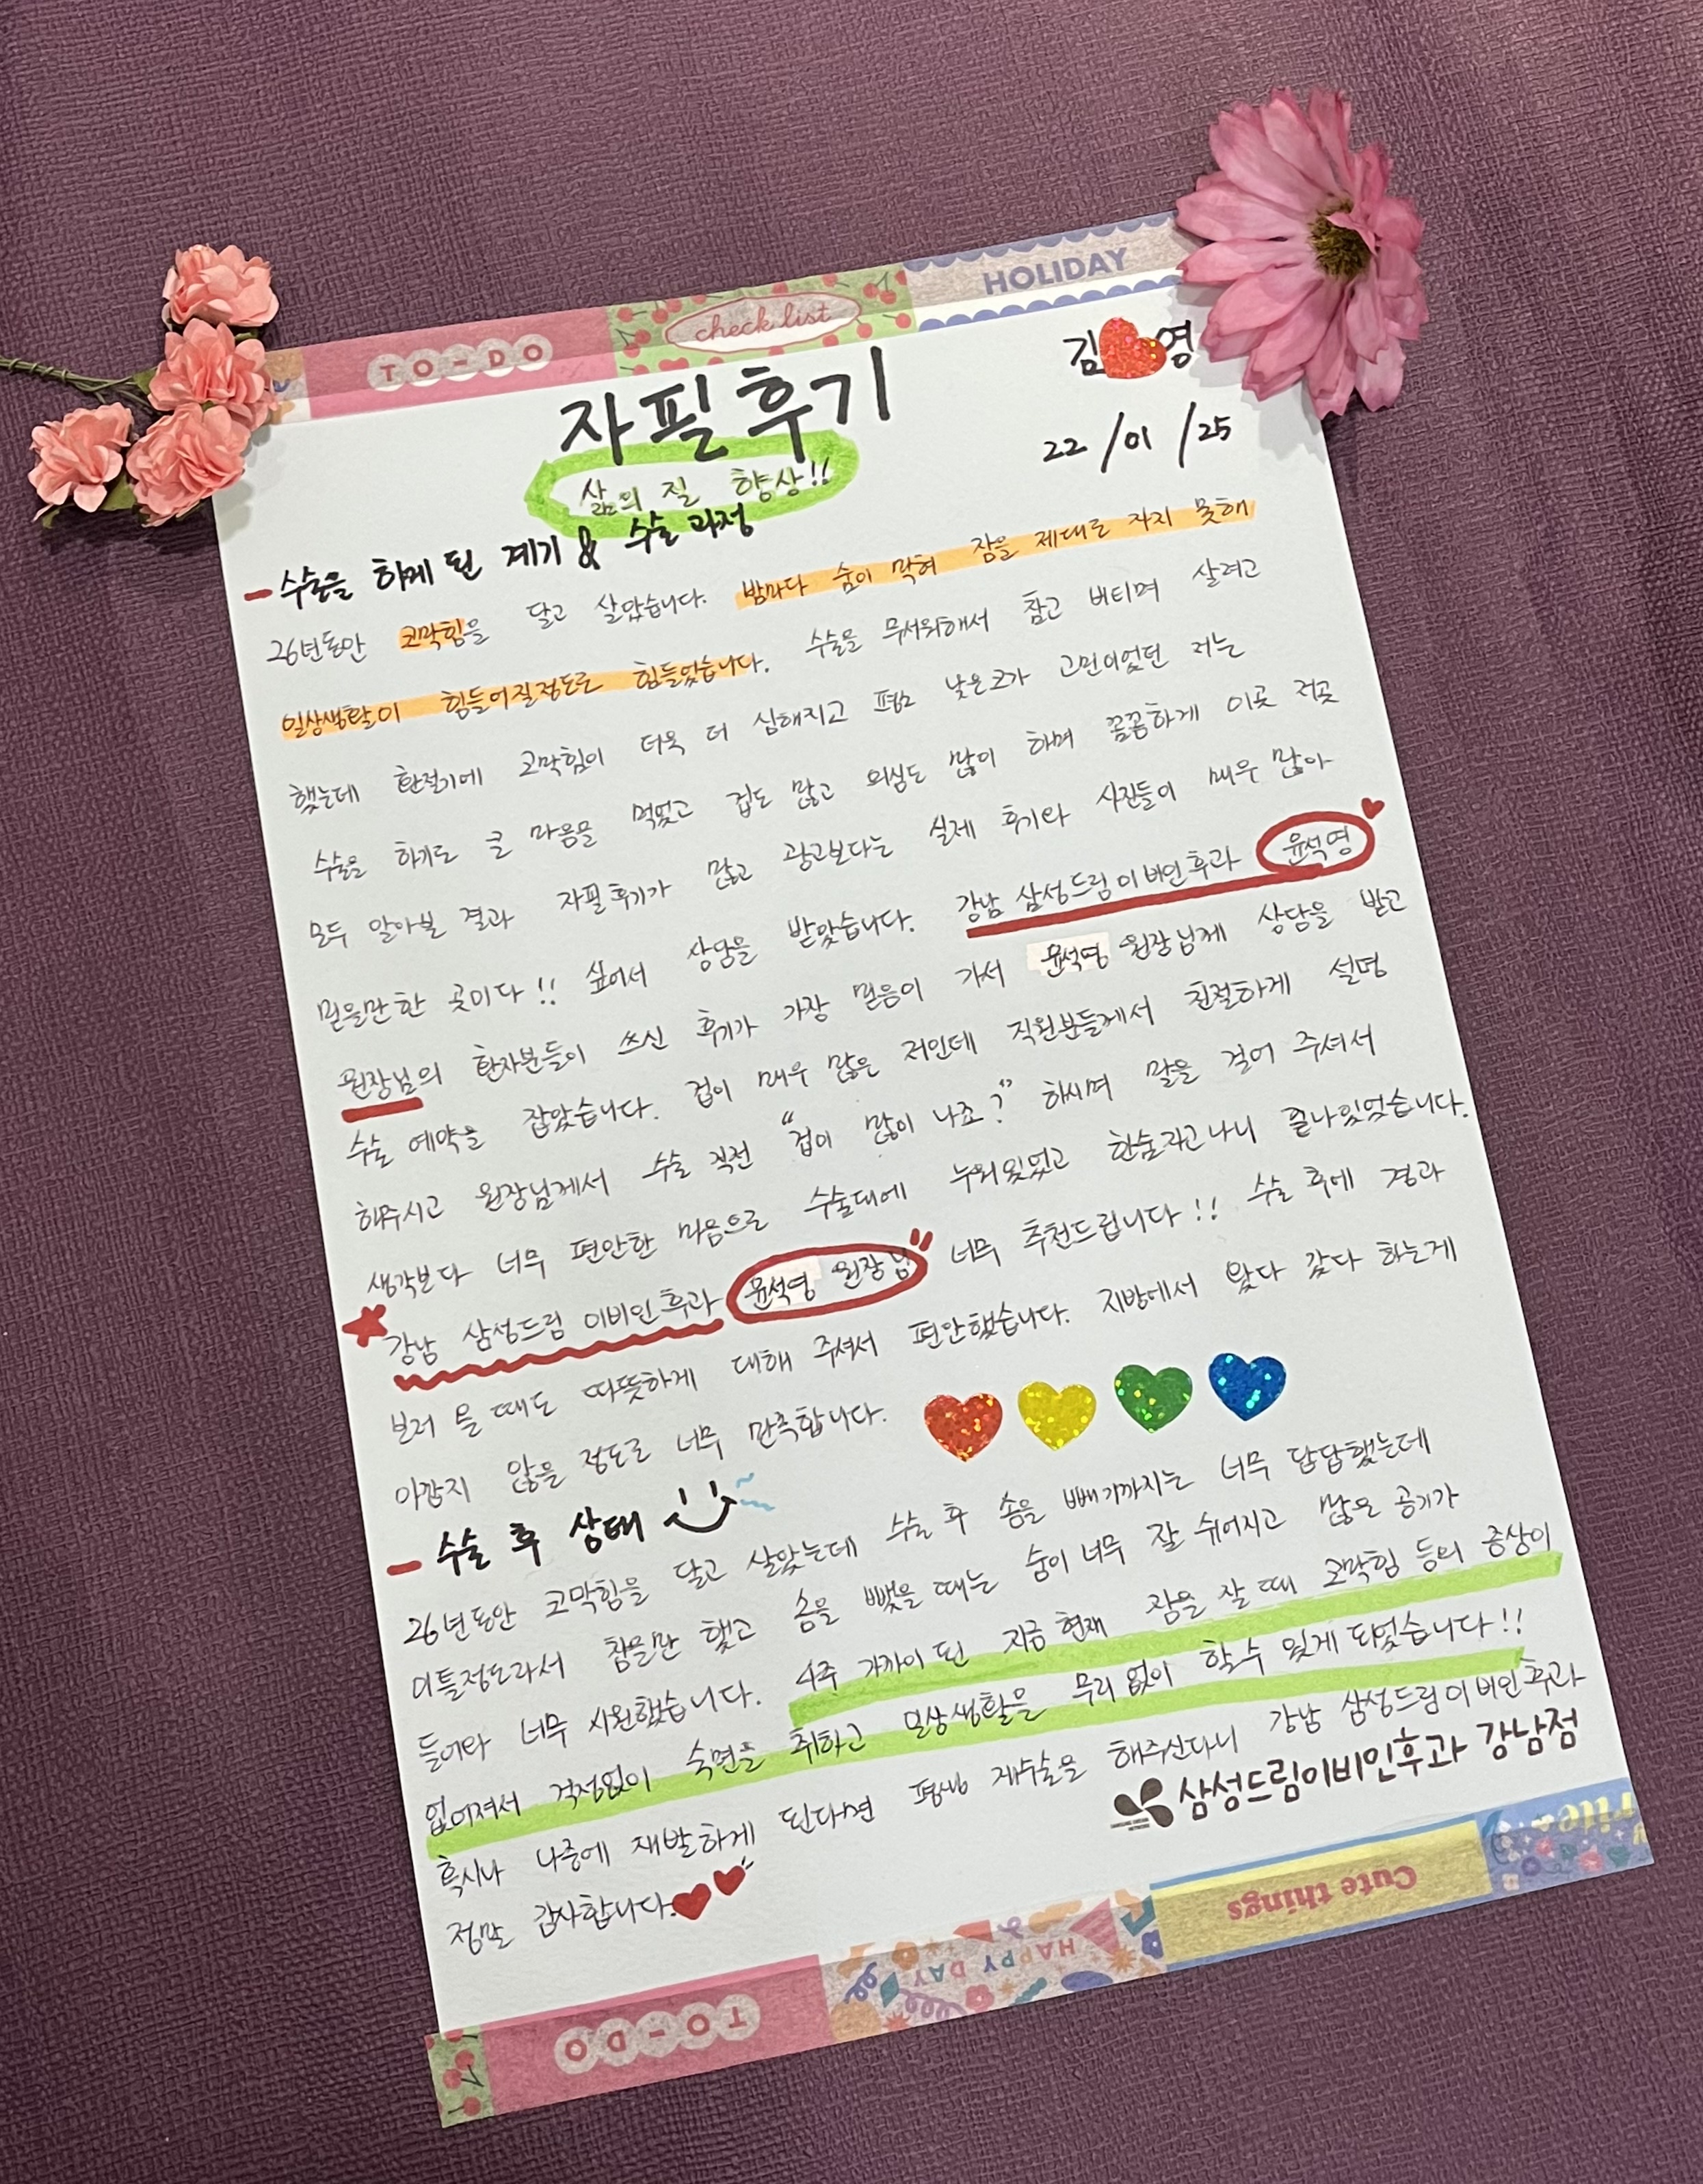 TO-DO
check list
HOLIDAY
김 영
자필후기
22/01/25
삶의 질 향상!!
- 수술을 하게 된 계기 & 수술 과정
26년동안 코막힘을 달고 살았습니다. 밤마다 숨이 막혀 잠을 제대로 자지 못해
일상생활이 힘들어질정도로 힘들었습니다. 수술을 무서워해서 참고 버티며 살려고
했는데 환절기에 코막힘이 더욱 더 심해지고 평소 낮은코가 고민이었던 저는
수술을 하기로 큰 마음을 먹었고 겁도 많고 의심도 많이 하며 꼼꼼하게 이곳 저곳
모두 알아본 결과 자필후기가 많고 광고보다는 실제 후기와 사진들이 매우 많아
믿을만한 곳이다!! 싶어서 상담을 받았습니다. 강남 삼성드림이비인후과 윤석영
원장님의 환자분들이 쓰신 후기가 가장 믿음이 가서 윤석영 원장님께 상담을 받고
수술 예약을 잡았습니다. 겁이 매우 많은 저인데 직원분들께서 친절하게 설명
해주시고 원장님께서 수술 직전 "겁이 많이 나죠?" 하시며 말을 걸어 주셔서
생각보다 너무 편안한 마음으로 수술대에 누워있었고 한숨자고나니 끝나있었습니다.
강남 삼성드림 이비인후과 윤석영 원장님 너무 추천드립니다!! 수술 후에 경과
보러 올 때도 따뜻하게 대해 주셔서 편안했습니다. 지방에서 왔다 갔다 하는게
아깝지 않을 정도로 너무 만족합니다.
- 수술 후 상태
26년동안 코막힘을 달고 살았는데 수술 후 솜을 빼기까지는 너무 답답했는데
이틀정도라서 참을만 했고 솜을 뺐을 때는 숨이 너무 잘 쉬어지고 많은 공기가
들어와 너무 시원했습니다. 4주 가까이 된 지금 현재 잠을 잘 때 코막힘 등의 증상이
없어져서 걱정없이 숙면을 취하고 일상생활을 무리 없이 할수 있게 되었습니다!!
혹시나 나중에 재발하게 된다면 평생 재수술을 해주신다니 강남 삼성드림이비인후과
정말 감사합니다.
삼성드림이비인후과 강남점
Cute things
HAPPY DAY
TO-DO